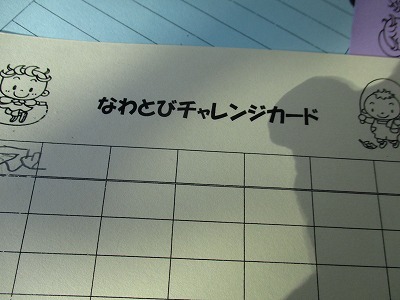 なわとびチャレンジカード